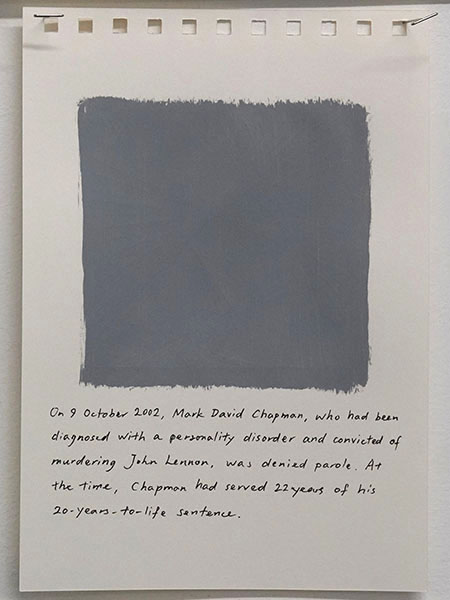 On 9 October 2002, Mark David Chapman, who had been
diagnosed with a personality disorder and convicted of
murdering John Lennon, was denied parole. At
the time, Chapman had served 22 years of his
20-years-to-life sentence.